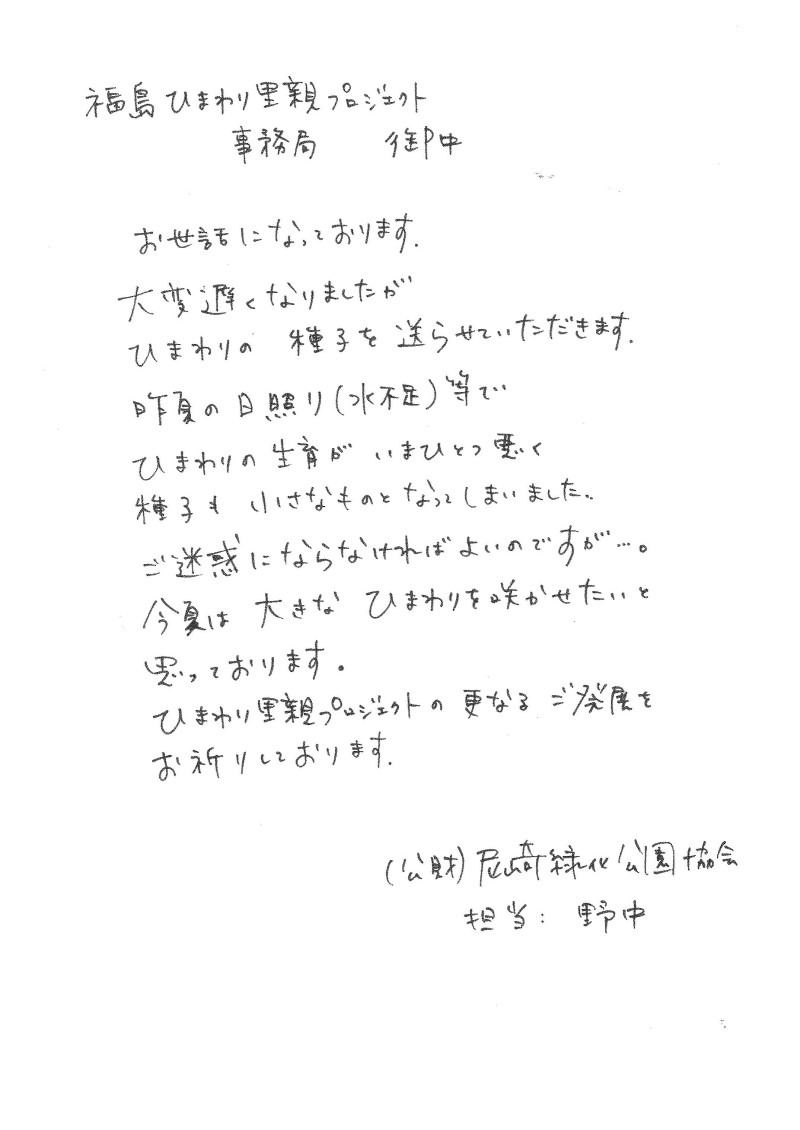 福島ひまわり里親プロジェクト
事務局 御中
お世話になっております.
大変遅くなりましたが
ひまわりの 種子を 送らせていただきます.
昨夏の日照り(水不足)等で
ひまわりの生育が いまひとつ悪く
種子も 小さなものとなってしまいました.
ご迷惑にならなければよいのですが…。
今夏は 大きな ひまわりを咲かせたいと
思っております。
ひまわり里親プロジェクトの 更なる ご発展を
お祈りしております.
(公財)尼崎緑化公園協会
担当: 野中